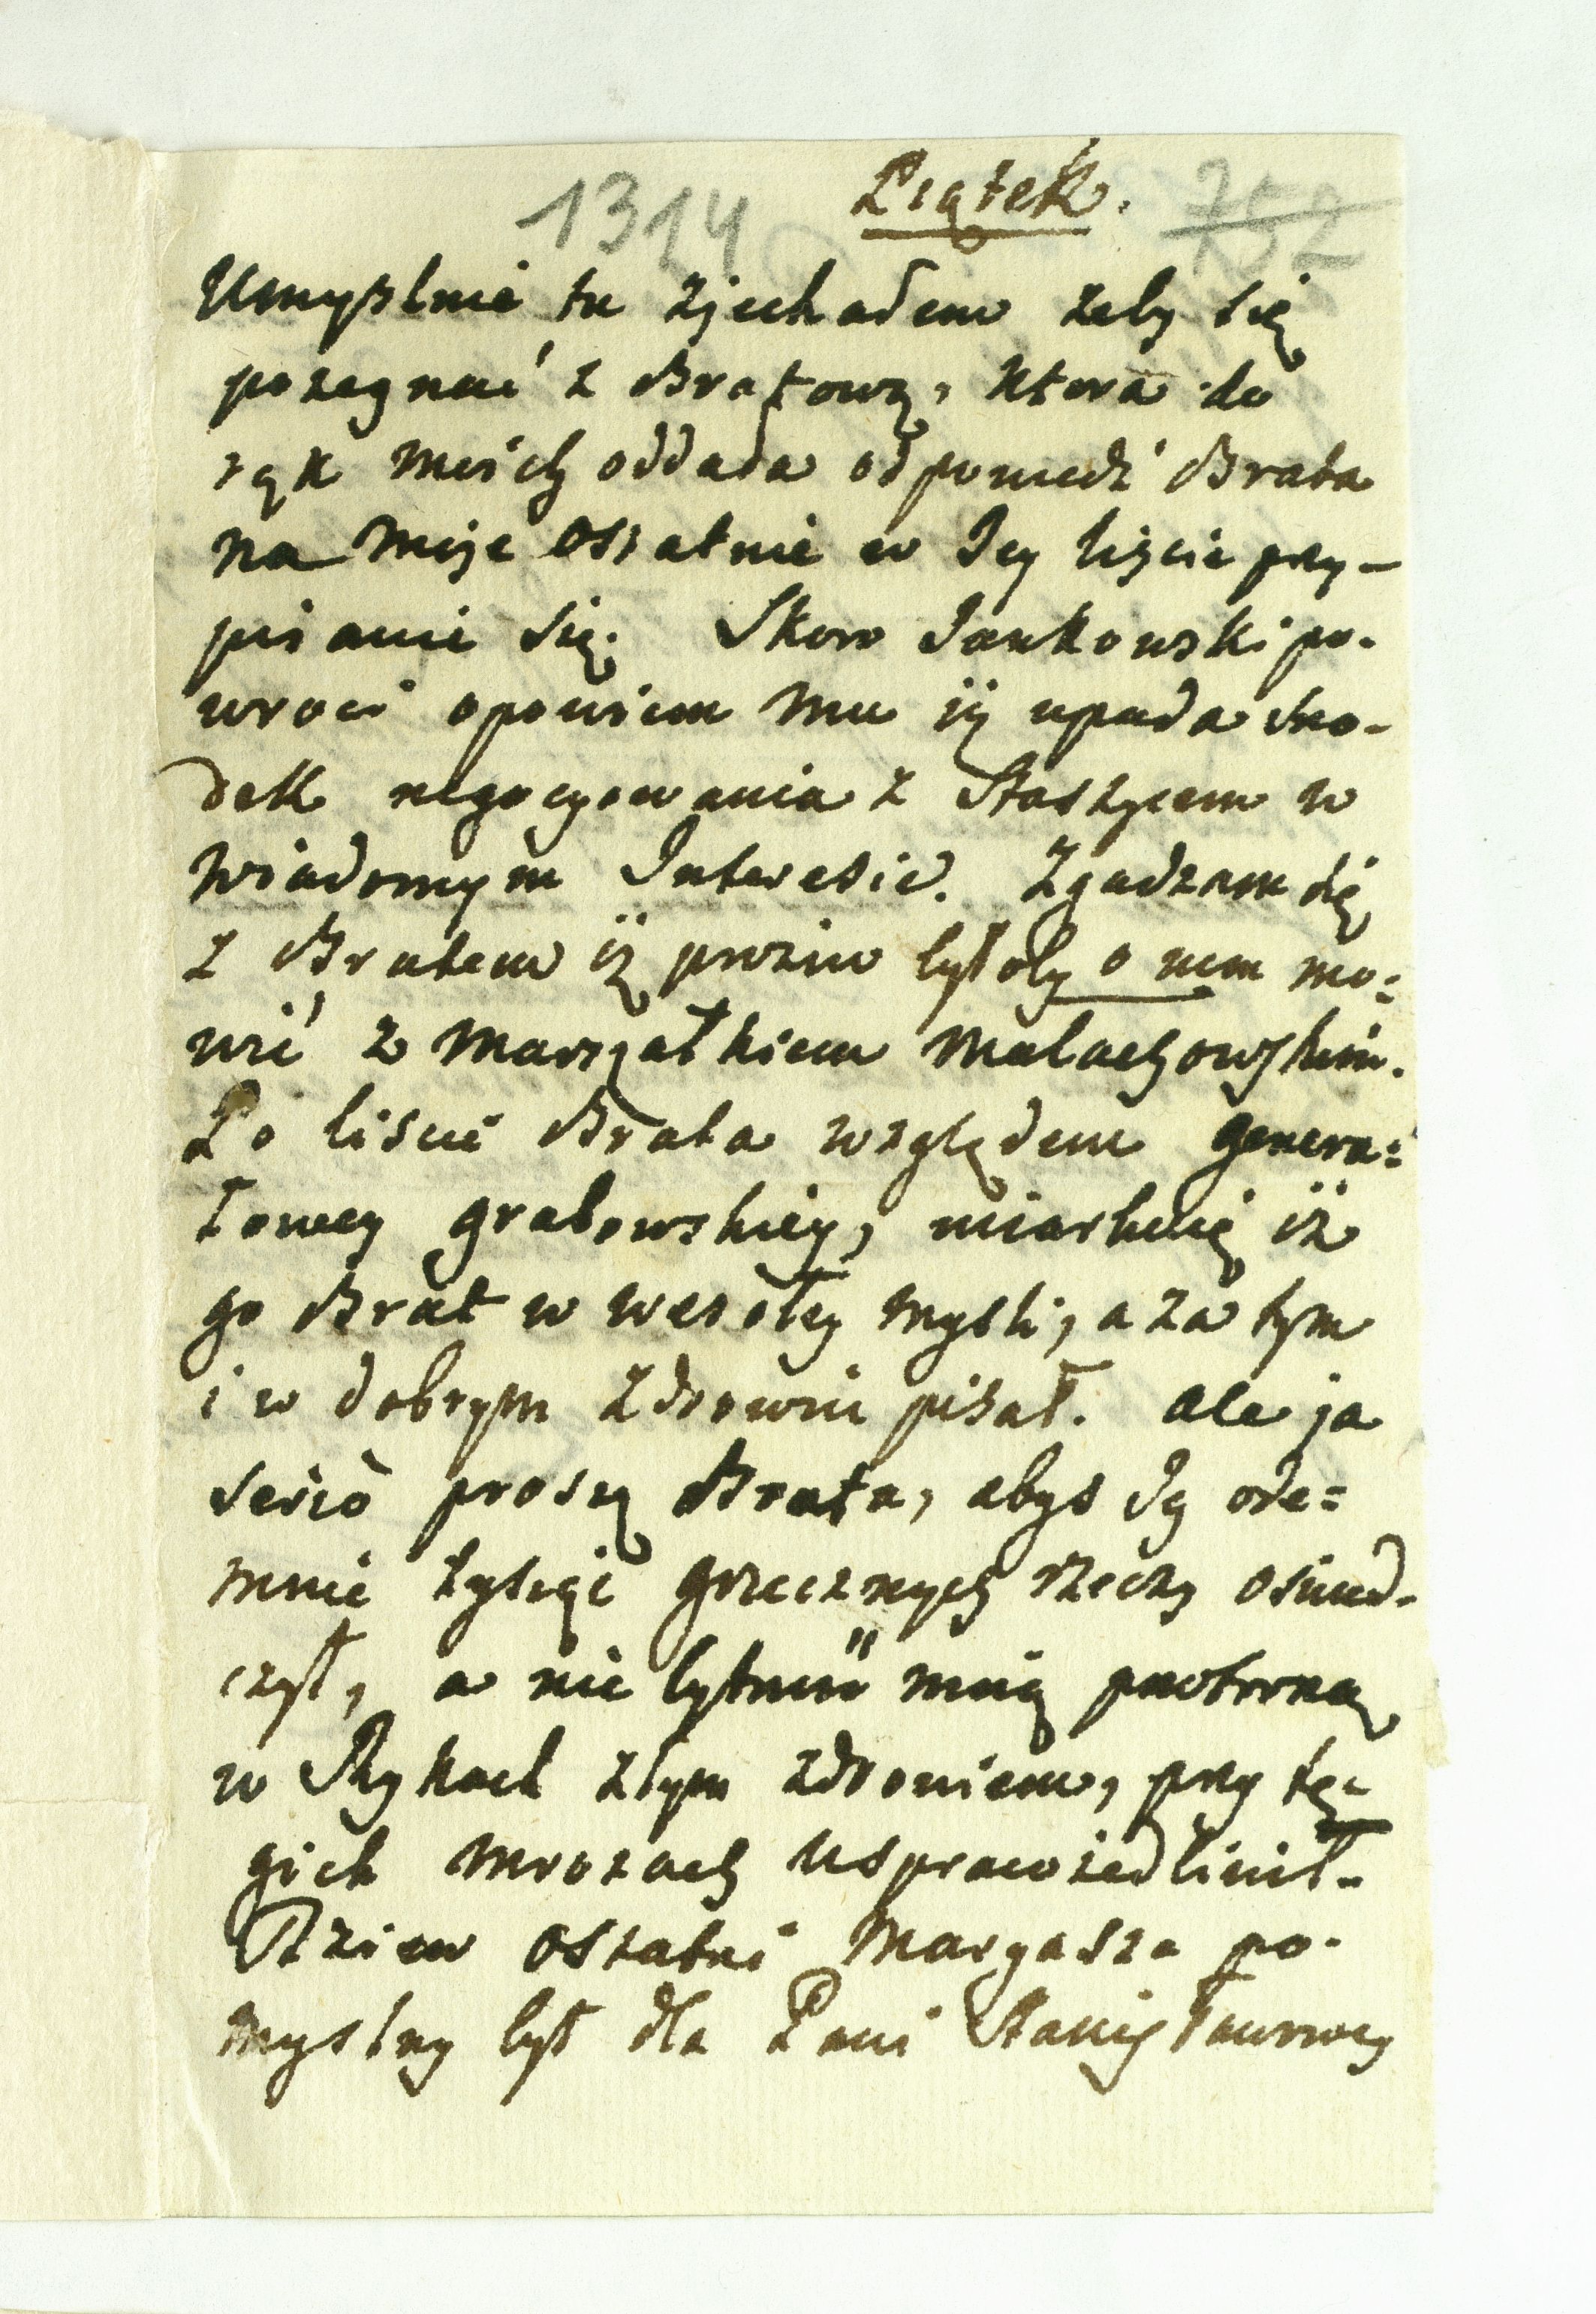 1314 Piątek. 752
Umyslnie tu zjechałem zeby się
pozegnać z Bratową, ktora do
rąk moich oddała odpowiedź Brata
na moje ostatnie w Jey liście przy-
pisanie się. Skoro Jankowski po-
wroci opowiem mu iż upada sro-
dek negocyowania z Staszycem w
wiadomym Interesie. Zgadzam się
z Bratem iż prozno byłoby o nim mo=
wić z Marszałkiem Małachowskim.
Po liscie Brata względem Genera=
łowey Grabowskiey, miarkuię iż
go Brat w wesołey mysli, a za tym
i w dobrym zdrowiu pisał. Ale ja
serio proszę Brata, abys Jey ode=
mnie tysiące grzecznych rzeczy oświad-
czył, a nie bytność moią
w Rykach złym zdrowiem, przy tę-
gich mrozach usprawiedliwił.
Dzien ostatni Margasza po-
myslny był dla Pani Stanisławowey